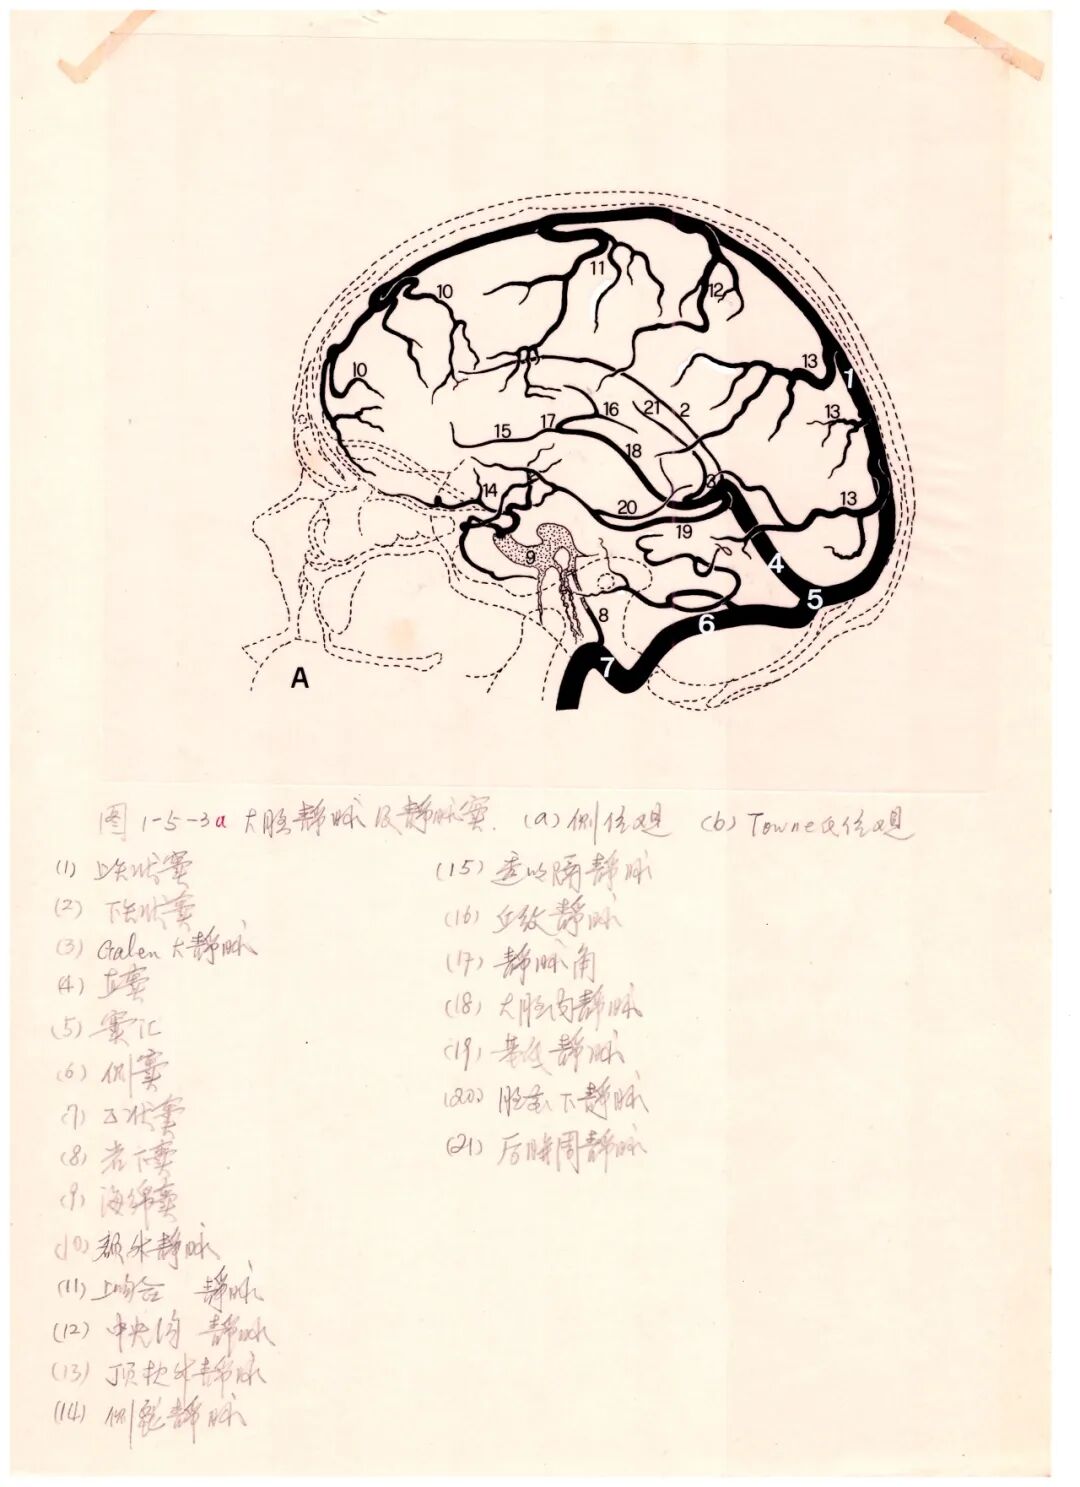 10
11
12
10
13
1
13
15
17
16
21
2
18
14
3
13
20
19
9
4
5
8
6
7
A
图1-5-3a 大脑静脉及静脉窦. (a)侧位观 (b)Towne氏位观
(1) 上矢状窦
(2) 下矢状窦
(3) Galen大静脉
(4) 直窦
(5) 窦汇
(6) 侧窦
(7) 乙状窦
(8) 岩下窦
(9) 海绵窦
(10) 额外静脉
(11) 上吻合 静脉
(12) 中央沟 静脉
(13) 顶枕外静脉
(14) 侧裂静脉
(15) 透明隔静脉
(16) 丘纹静脉
(17) 静脉角
(18) 大脑内静脉
(19) 基底静脉
(20) 脑室下静脉
(21) 后胼周静脉